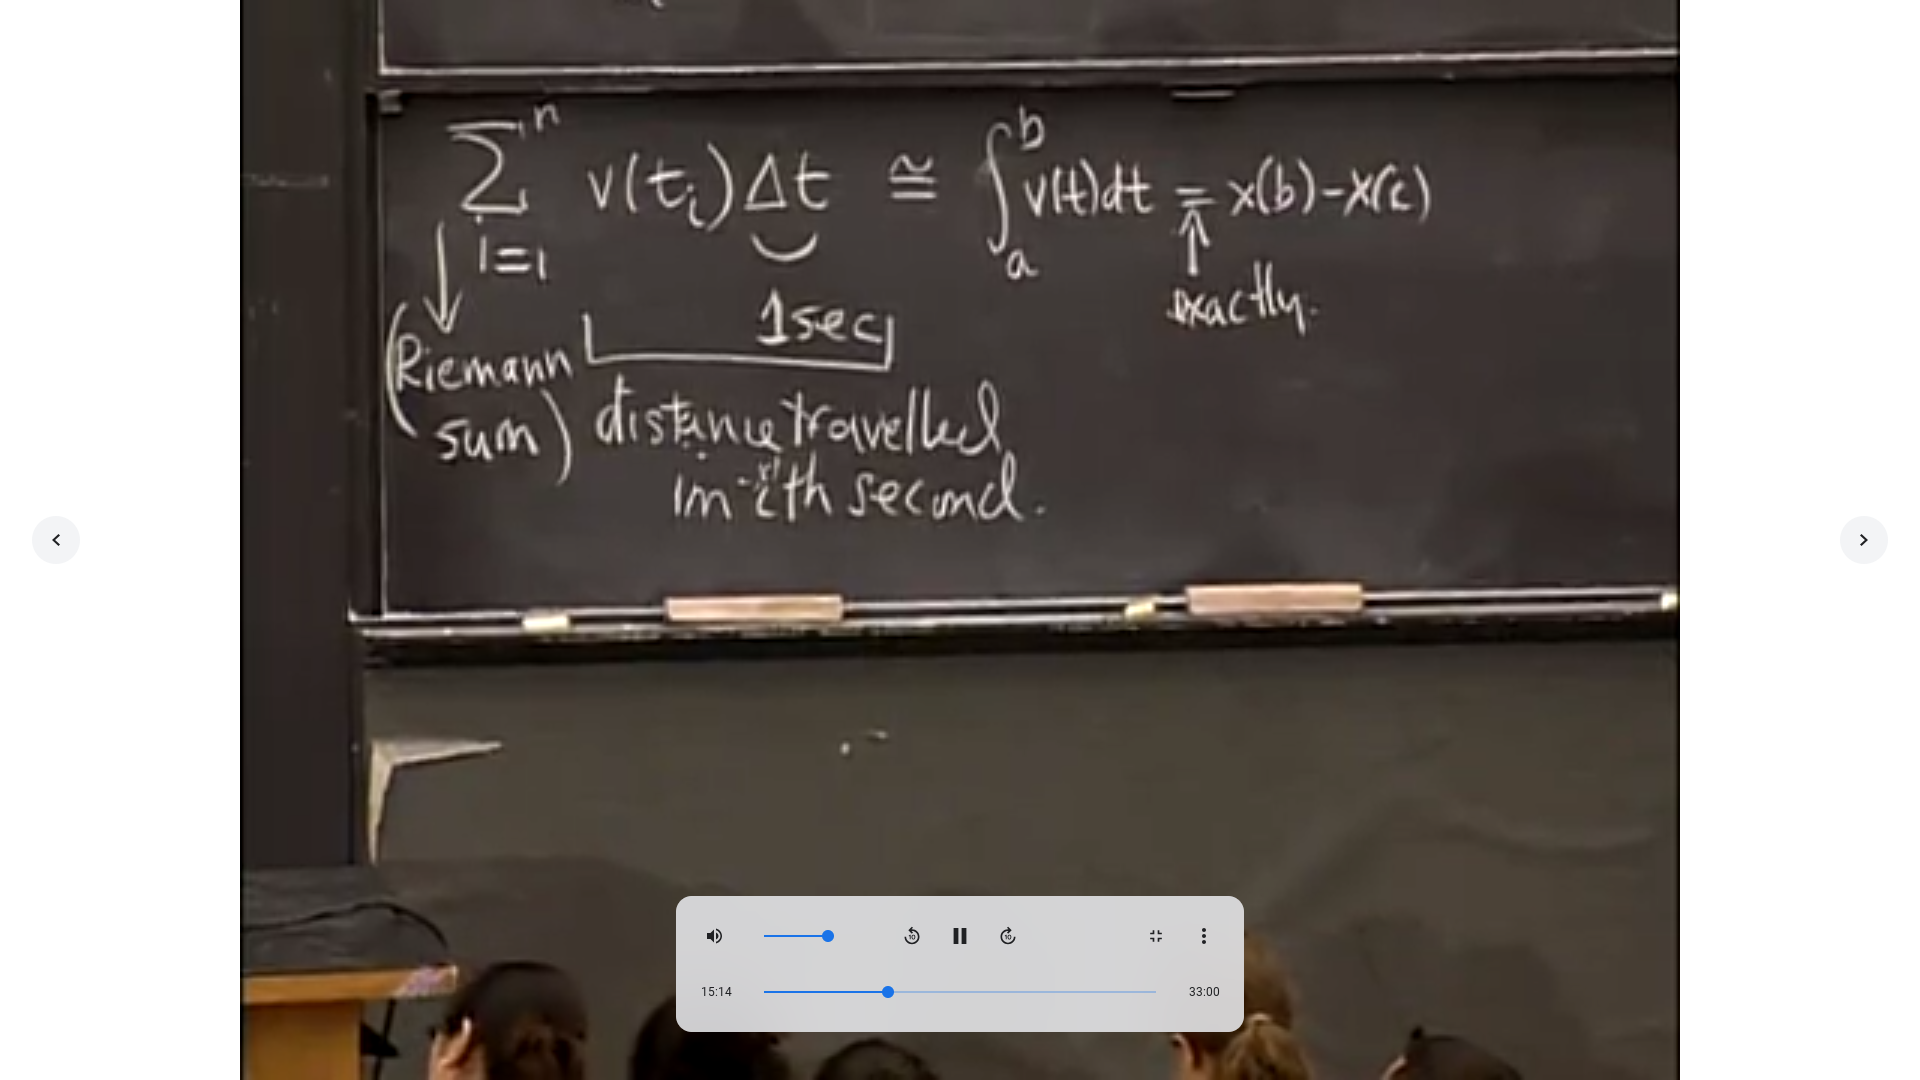 n
∑ v(tᵢ)Δt ≅ ∫ₐᵇ v(t)dt = x(b)-x(c)
i=1
exactly.
1sec
(Riemann
sum)
distance travelled
in ith second.
15:14
33:00